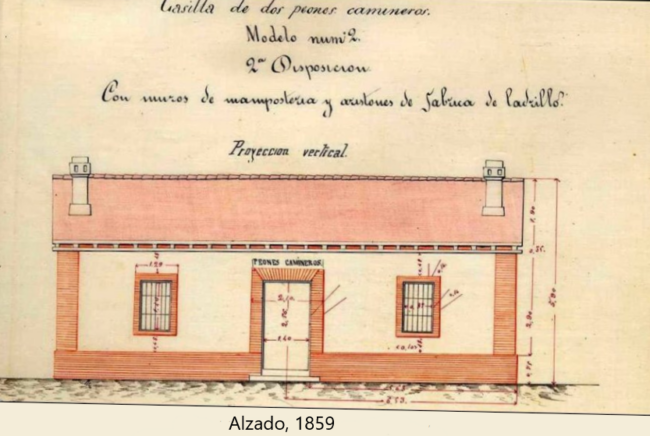 Casilla de dos peones camineros.
Modelo num 2.
2ª Disposicion
Con muros de mamposteria y aristones de fabrica de ladrillo.
Proyeccion vertical.
PEONES CAMINEROS
Alzado, 1859